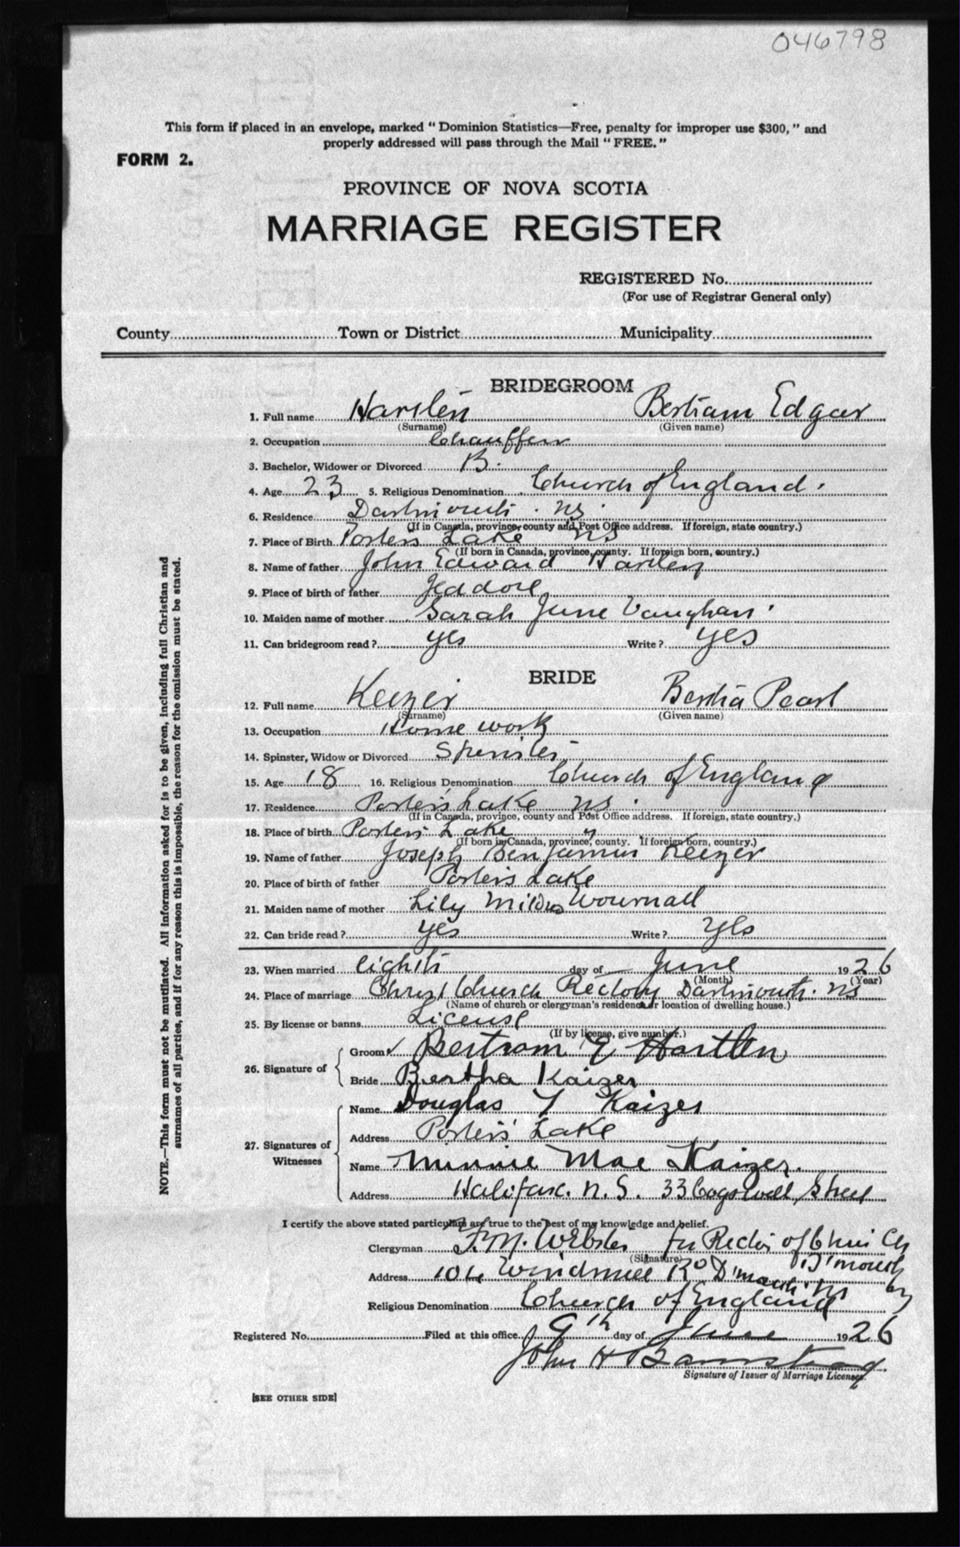 046798
This form if placed in an envelope, marked “ Dominion Statistics—Free, penalty for improper use $300, ” and
properly addressed will pass through the Mail “ FREE. ”
FORM 2.
PROVINCE OF NOVA SCOTIA
MARRIAGE REGISTER
REGISTERED No.
(For use of Registrar General only)
County Town or District Municipality
BRIDEGROOM
1. Full name Hartlen Bertram Edgar
(Surname) (Given name)
2. Occupation Chauffeur
3. Bachelor, Widower or Divorced B.
4. Age 23 5. Religious Denomination Church of England.
6. Residence Dartmouth. NS.
(If in Canada, province, county and Post Office address. If foreign, state country.)
7. Place of Birth Porters Lake NS
(If born in Canada, province, county. If foreign born, country.)
8. Name of father John Edward Hartlen
9. Place of birth of father Jeddore
10. Maiden name of mother Sarah June Vaughan
11. Can bridegroom read? yes Write? yes
BRIDE
12. Full name Keizer Bertha Pearl
(Surname) (Given name)
13. Occupation Home work
14. Spinster, Widow or Divorced Spinster
15. Age 18 16. Religious Denomination Church of England
17. Residence Porters Lake NS.
(If in Canada, province, county and Post Office address. If foreign, state country.)
18. Place of birth Porters Lake "
(If born in Canada, province, county. If foreign born, country.)
19. Name of father Joseph Benjamin Keizer
20. Place of birth of father Porters Lake
21. Maiden name of mother Lily
22. Can bride read? yes Write? yes
23. When married eighth day of June 1926
(Month) (Year)
24. Place of marriage Christ Church Rectory Dartmouth. NS
(Name of church or clergyman's residence or location of dwelling house.)
25. By license or banns License
(If by license, give number.)
26. Signature of Groom Bertram E Hartlen
Bride Bertha Kaizer
27. Signatures of Witnesses Name Douglas Y Kaizer
Address Porters Lake
Name Minnie Mae Kaizer.
Address Halifax. N.S. 33 Cogswell Street
I certify the above stated particulars are true to the best of my knowledge and belief.
Clergyman Webster for Rector of Christ Ch
(Signature) D'mouth
Address 104 Windmill Rd D'mouth. NS
Religious Denomination Church of England
Registered No. Filed at this office 9th day of June 1926
John H
Signature of Issuer of Marriage Licenses.
[SEE OTHER SIDE]
NOTE.—This form must not be mutilated. All information asked for is to be given, including full Christian and
surnames of all parties, and if for any reason this is impossible, the reason for the omission must be stated.